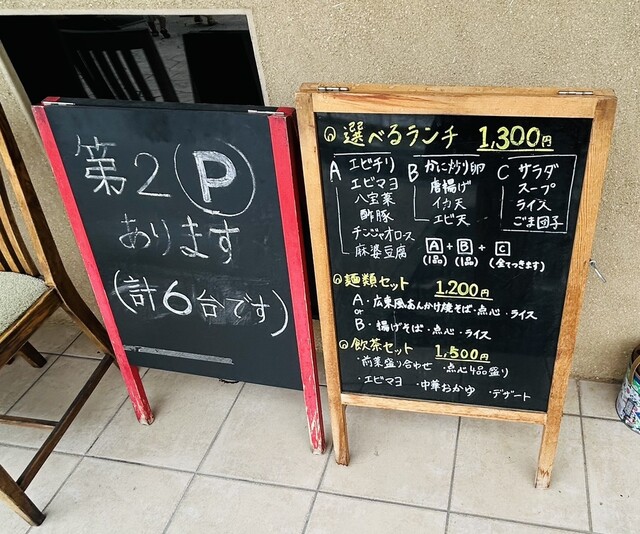 第2Ⓟ
あります
(計6台です)
選べるランチ 1,300円
A エビチリ
エビマヨ
八宝菜
酢豚
チンジャオロース
麻婆豆腐
B かに炒り卵
唐揚げ
イカ天
エビ天
C サラダ
スープ
ライス
ごま団子
A + B + C
(1品) (1品) (全てつきます)
麺類セット 1,200円
A・広東風あんかけ焼そば・点心・ライス
or
B・揚げそば・点心・ライス
飲茶セット 1,500円
・前菜盛り合わせ ・点心4品盛り
・エビマヨ ・中華おかゆ ・デザート